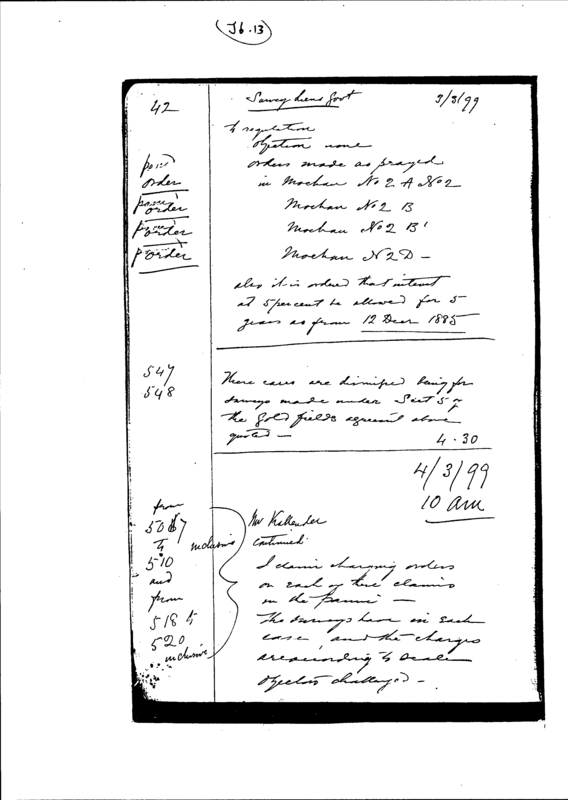 J6.13
42
Survey Liens Govt 3/3/99
to regulation
Objection none
orders made as prayed
order in Mochau No 2 A No 2
order Mochau No 2 B
order Mochau No 2 B'
order Mochau N 2 D -
also it is ordered that interest
at 5 percent be allowed for 5
years as from 12 Decr 1885
547
548
These cases are dismissed being for
surveys made under Sect 5 of
the Gold fields agreemt above
quoted - 4.30
4/3/99
10 am
from
507
to inclusive
510
and
from
518 to
520
inclusive
Mr Kallender
continued
I claim charging orders
on each of these claims
in the
The surveys have in each
case, and the charges
are according to Scale
Objectors challenged -